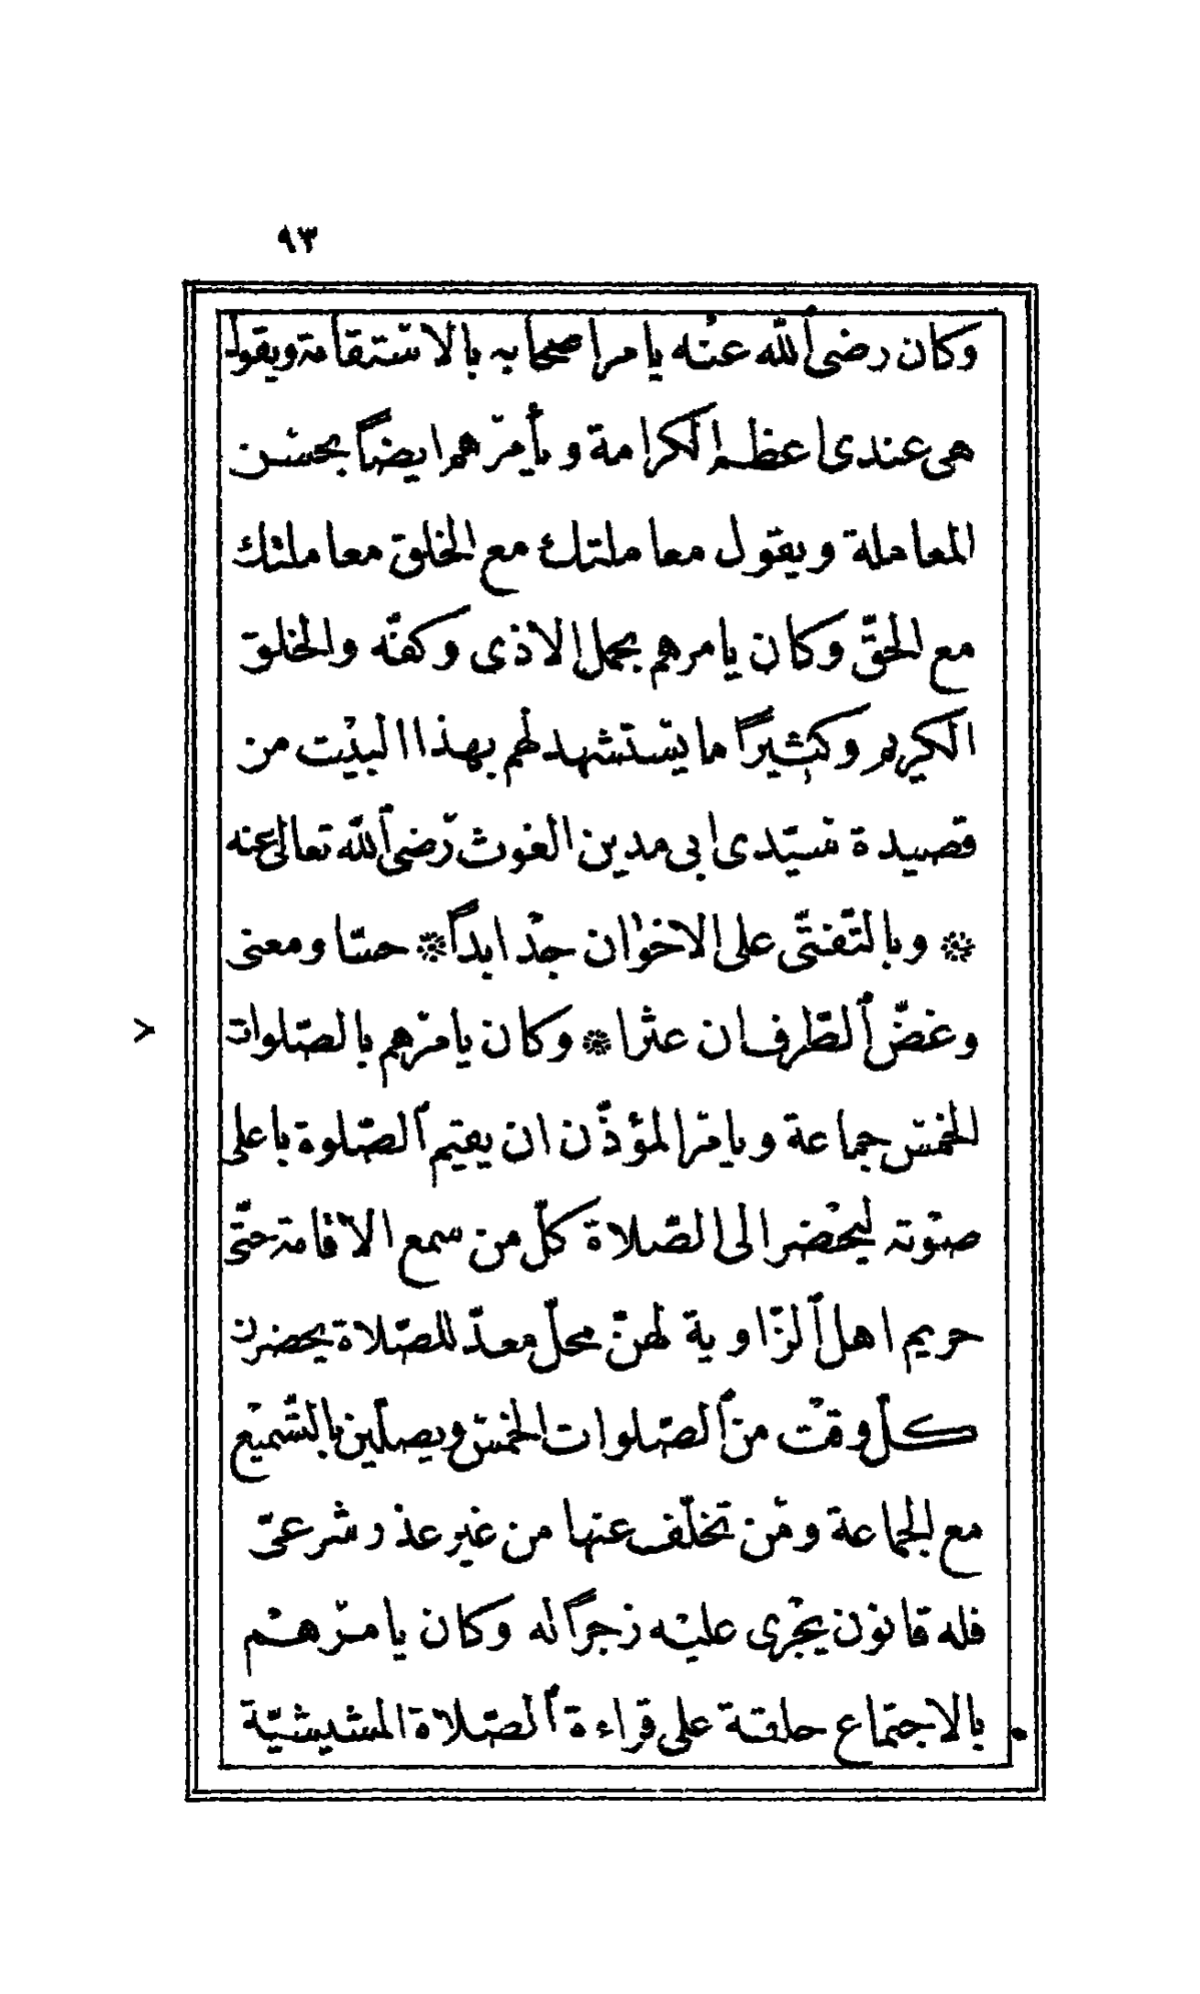 ٩٣
وكان رضى الله عنه يامر اصحابه بالاستقامة ويقول
هى عندى اعظم الكرامة ويأمرهم ايضاً بحسن
المعاملة ويقول معاملتك مع الخلق معاملتك
مع الحقّ وكان يامرهم بحمل الاذى وكفّه والخلق
الكريم وكثيراً ما يستشهد لهم بهذا البيت من
قصيدة سيّدى ابى مدين الغوث رضى الله تعالى عنه
* وبالتّفتّى على الاخوان جد ابداً * حسّا ومعنى
وغضّ الطّرف ان عثرا * وكان يامرهم بالصّلوات
الخمس جماعة ويامر المؤذّن ان يقيم الصّلوة باعلى
صوته ليحضر الى الصّلاة كلّ من سمع الاقامة حتّى
حريم اهل الزّاوية لهنّ محلّ معدّ للصّلاة يحضرن
كلّ وقت من الصّلوات الخمس ويصلّين بالتّسميع
مع الجماعة ومن تخلّف عنها من غير عذر شرعىّ
فله قانون يجرى عليه زجراً له وكان يامرهم
بالاجتماع حلقة على قراءة الصّلاة المشيشيّة